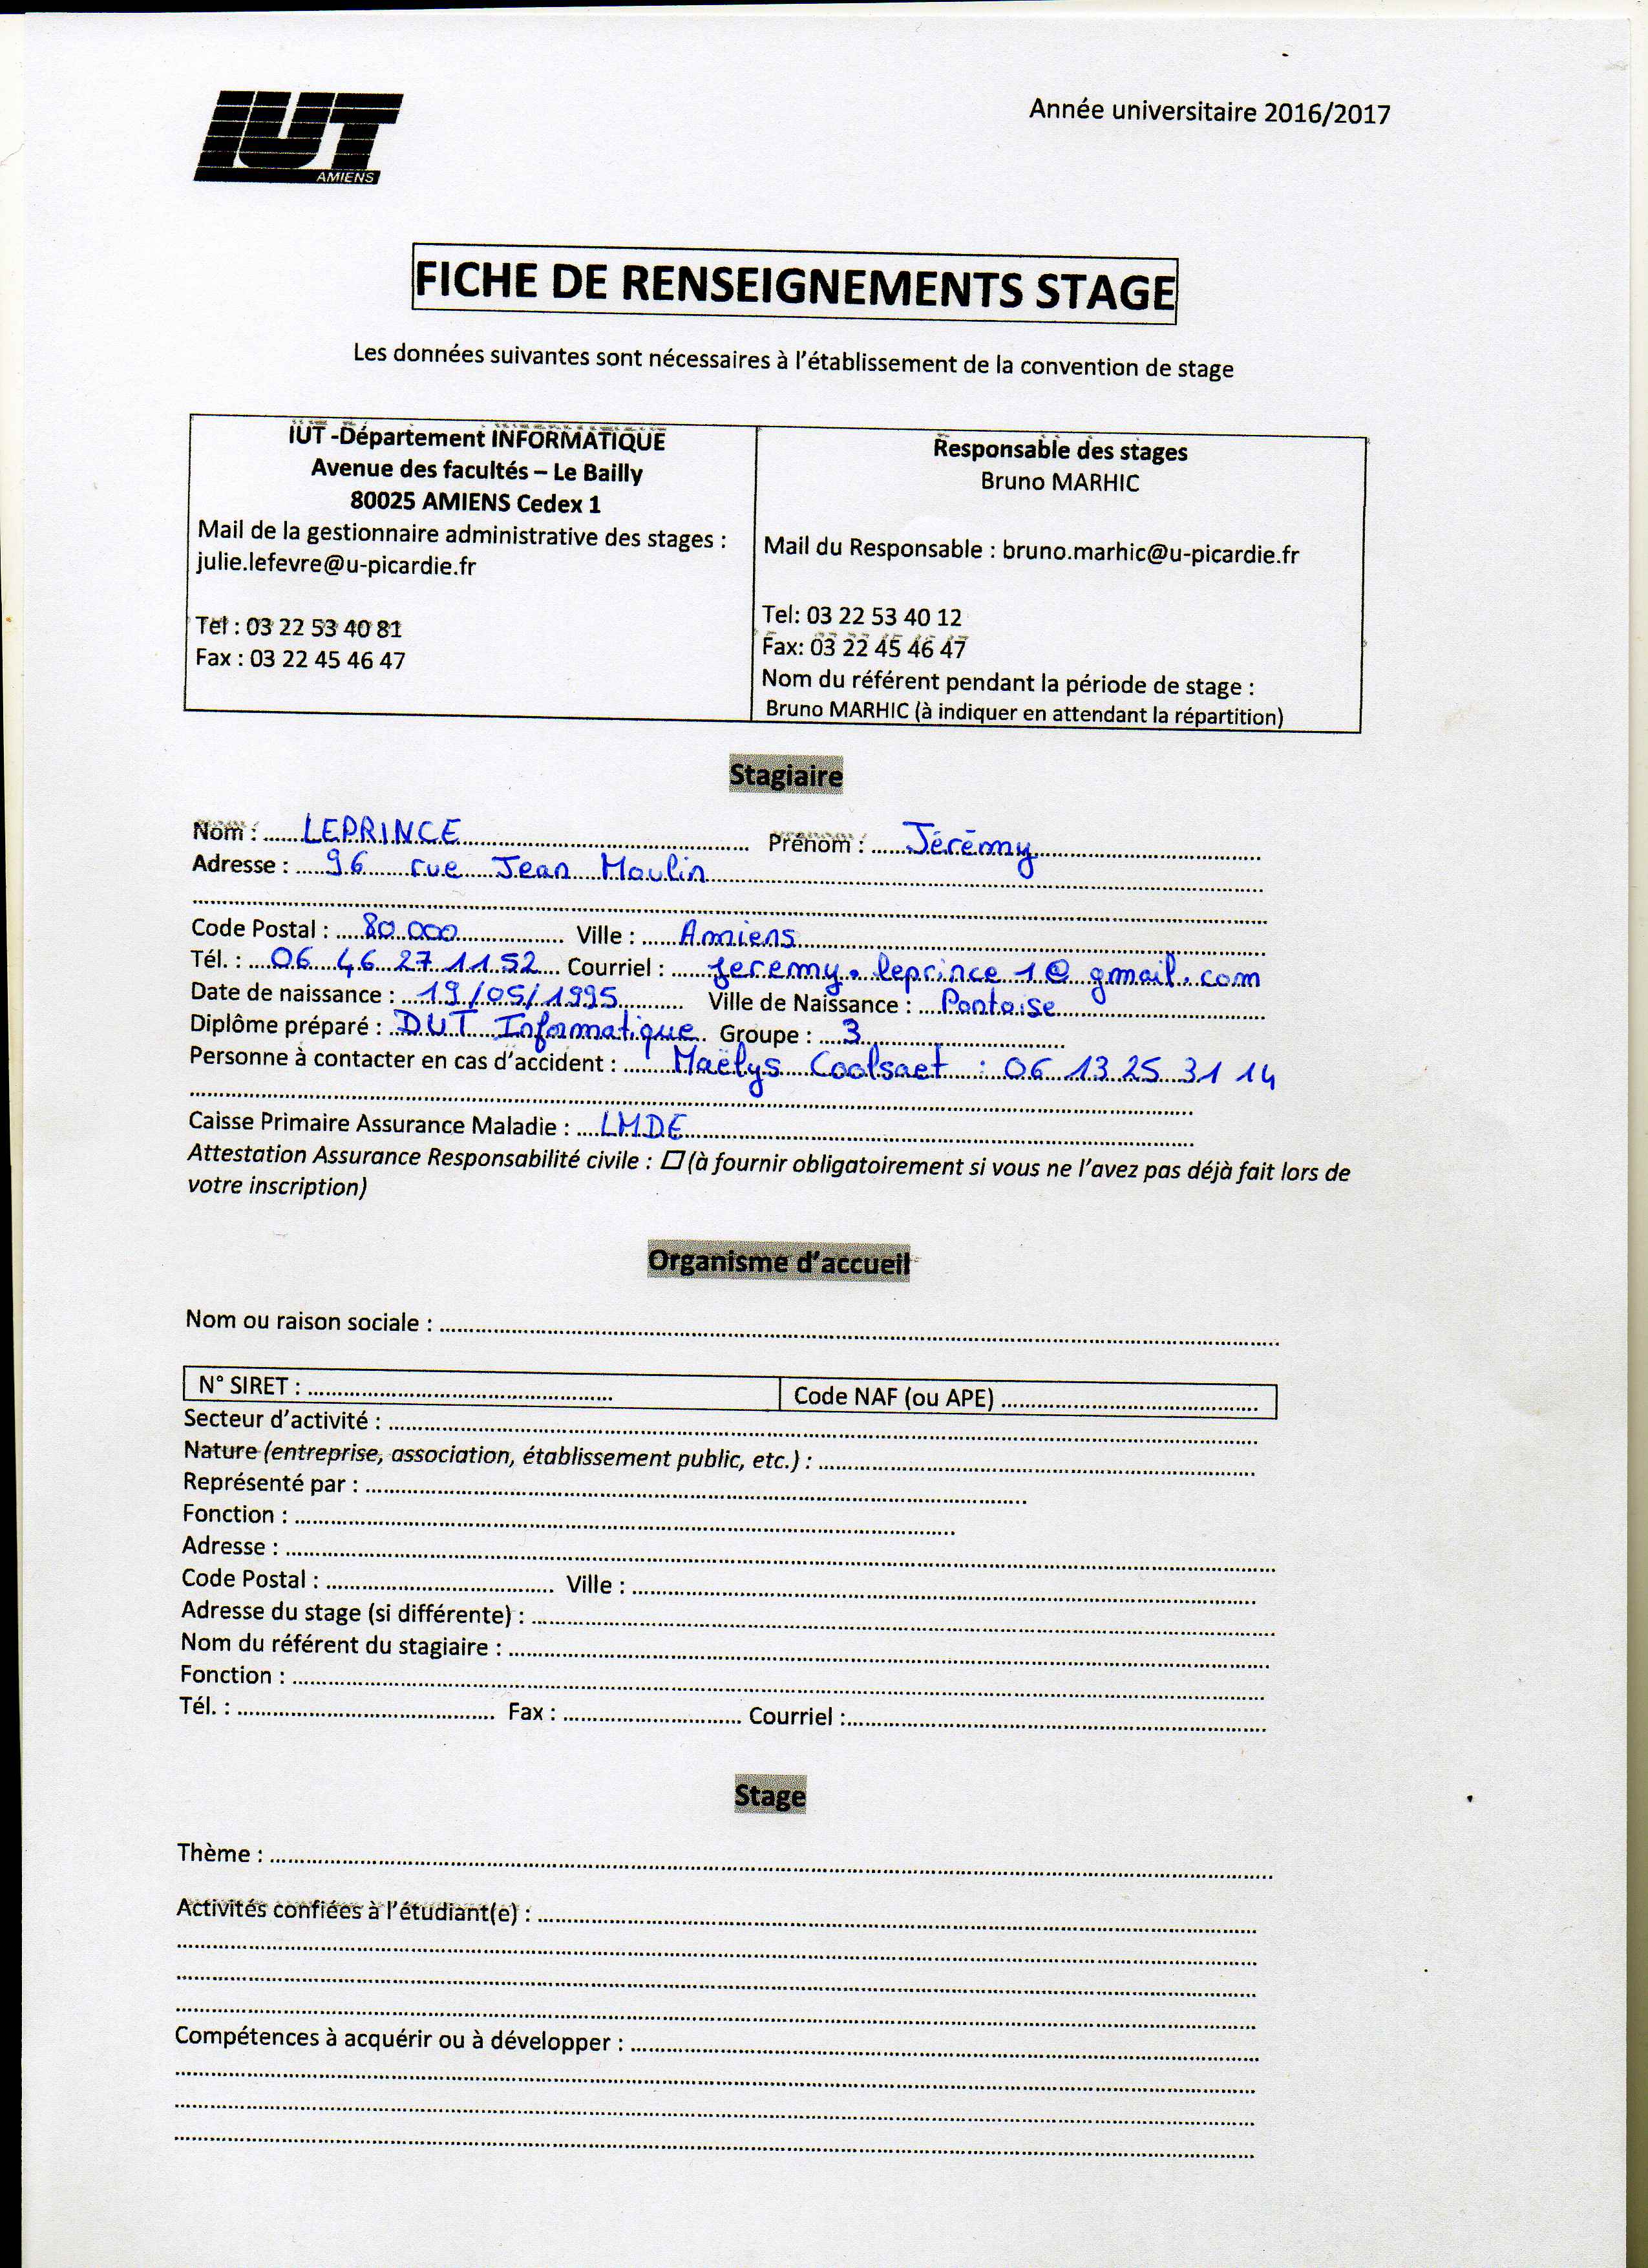 IUT
AMIENS
Année universitaire 2016/2017
FICHE DE RENSEIGNEMENTS STAGE
Les données suivantes sont nécessaires à l'établissement de la convention de stage
IUT -Département INFORMATIQUE
Avenue des facultés – Le Bailly
80025 AMIENS Cedex 1
Mail de la gestionnaire administrative des stages :
julie.lefevre@u-picardie.fr
Tel : 03 22 53 40 81
Fax : 03 22 45 46 47
Responsable des stages
Bruno MARHIC
Mail du Responsable : bruno.marhic@u-picardie.fr
Tel: 03 22 53 40 12
Fax: 03 22 45 46 47
Nom du référent pendant la période de stage :
Bruno MARHIC (à indiquer en attendant la répartition)
Stagiaire
Nom : LEPRINCE Prénom : Jérémy
Adresse : 96 rue Jean Moulin
Code Postal : 80 000 Ville : Amiens
Tél. : 06 46 27 11 52 Courriel : jeremy.leprince1@gmail.com
Date de naissance : 19/05/1995 Ville de Naissance : Pontoise
Diplôme préparé : DUT Informatique Groupe : 3
Personne à contacter en cas d'accident : Maëlys Coolsaet : 06 13 25 31 14
Caisse Primaire Assurance Maladie : LMDE
Attestation Assurance Responsabilité civile : ☐ (à fournir obligatoirement si vous ne l'avez pas déjà fait lors de
votre inscription)
Organisme d'accueil
Nom ou raison sociale :
N° SIRET : Code NAF (ou APE)
Secteur d'activité :
Nature (entreprise, association, établissement public, etc.) :
Représenté par :
Fonction :
Adresse :
Code Postal : Ville :
Adresse du stage (si différente) :
Nom du référent du stagiaire :
Fonction :
Tél. : Fax : Courriel :
Stage
Thème :
Activités confiées à l'étudiant(e) :
Compétences à acquérir ou à développer :